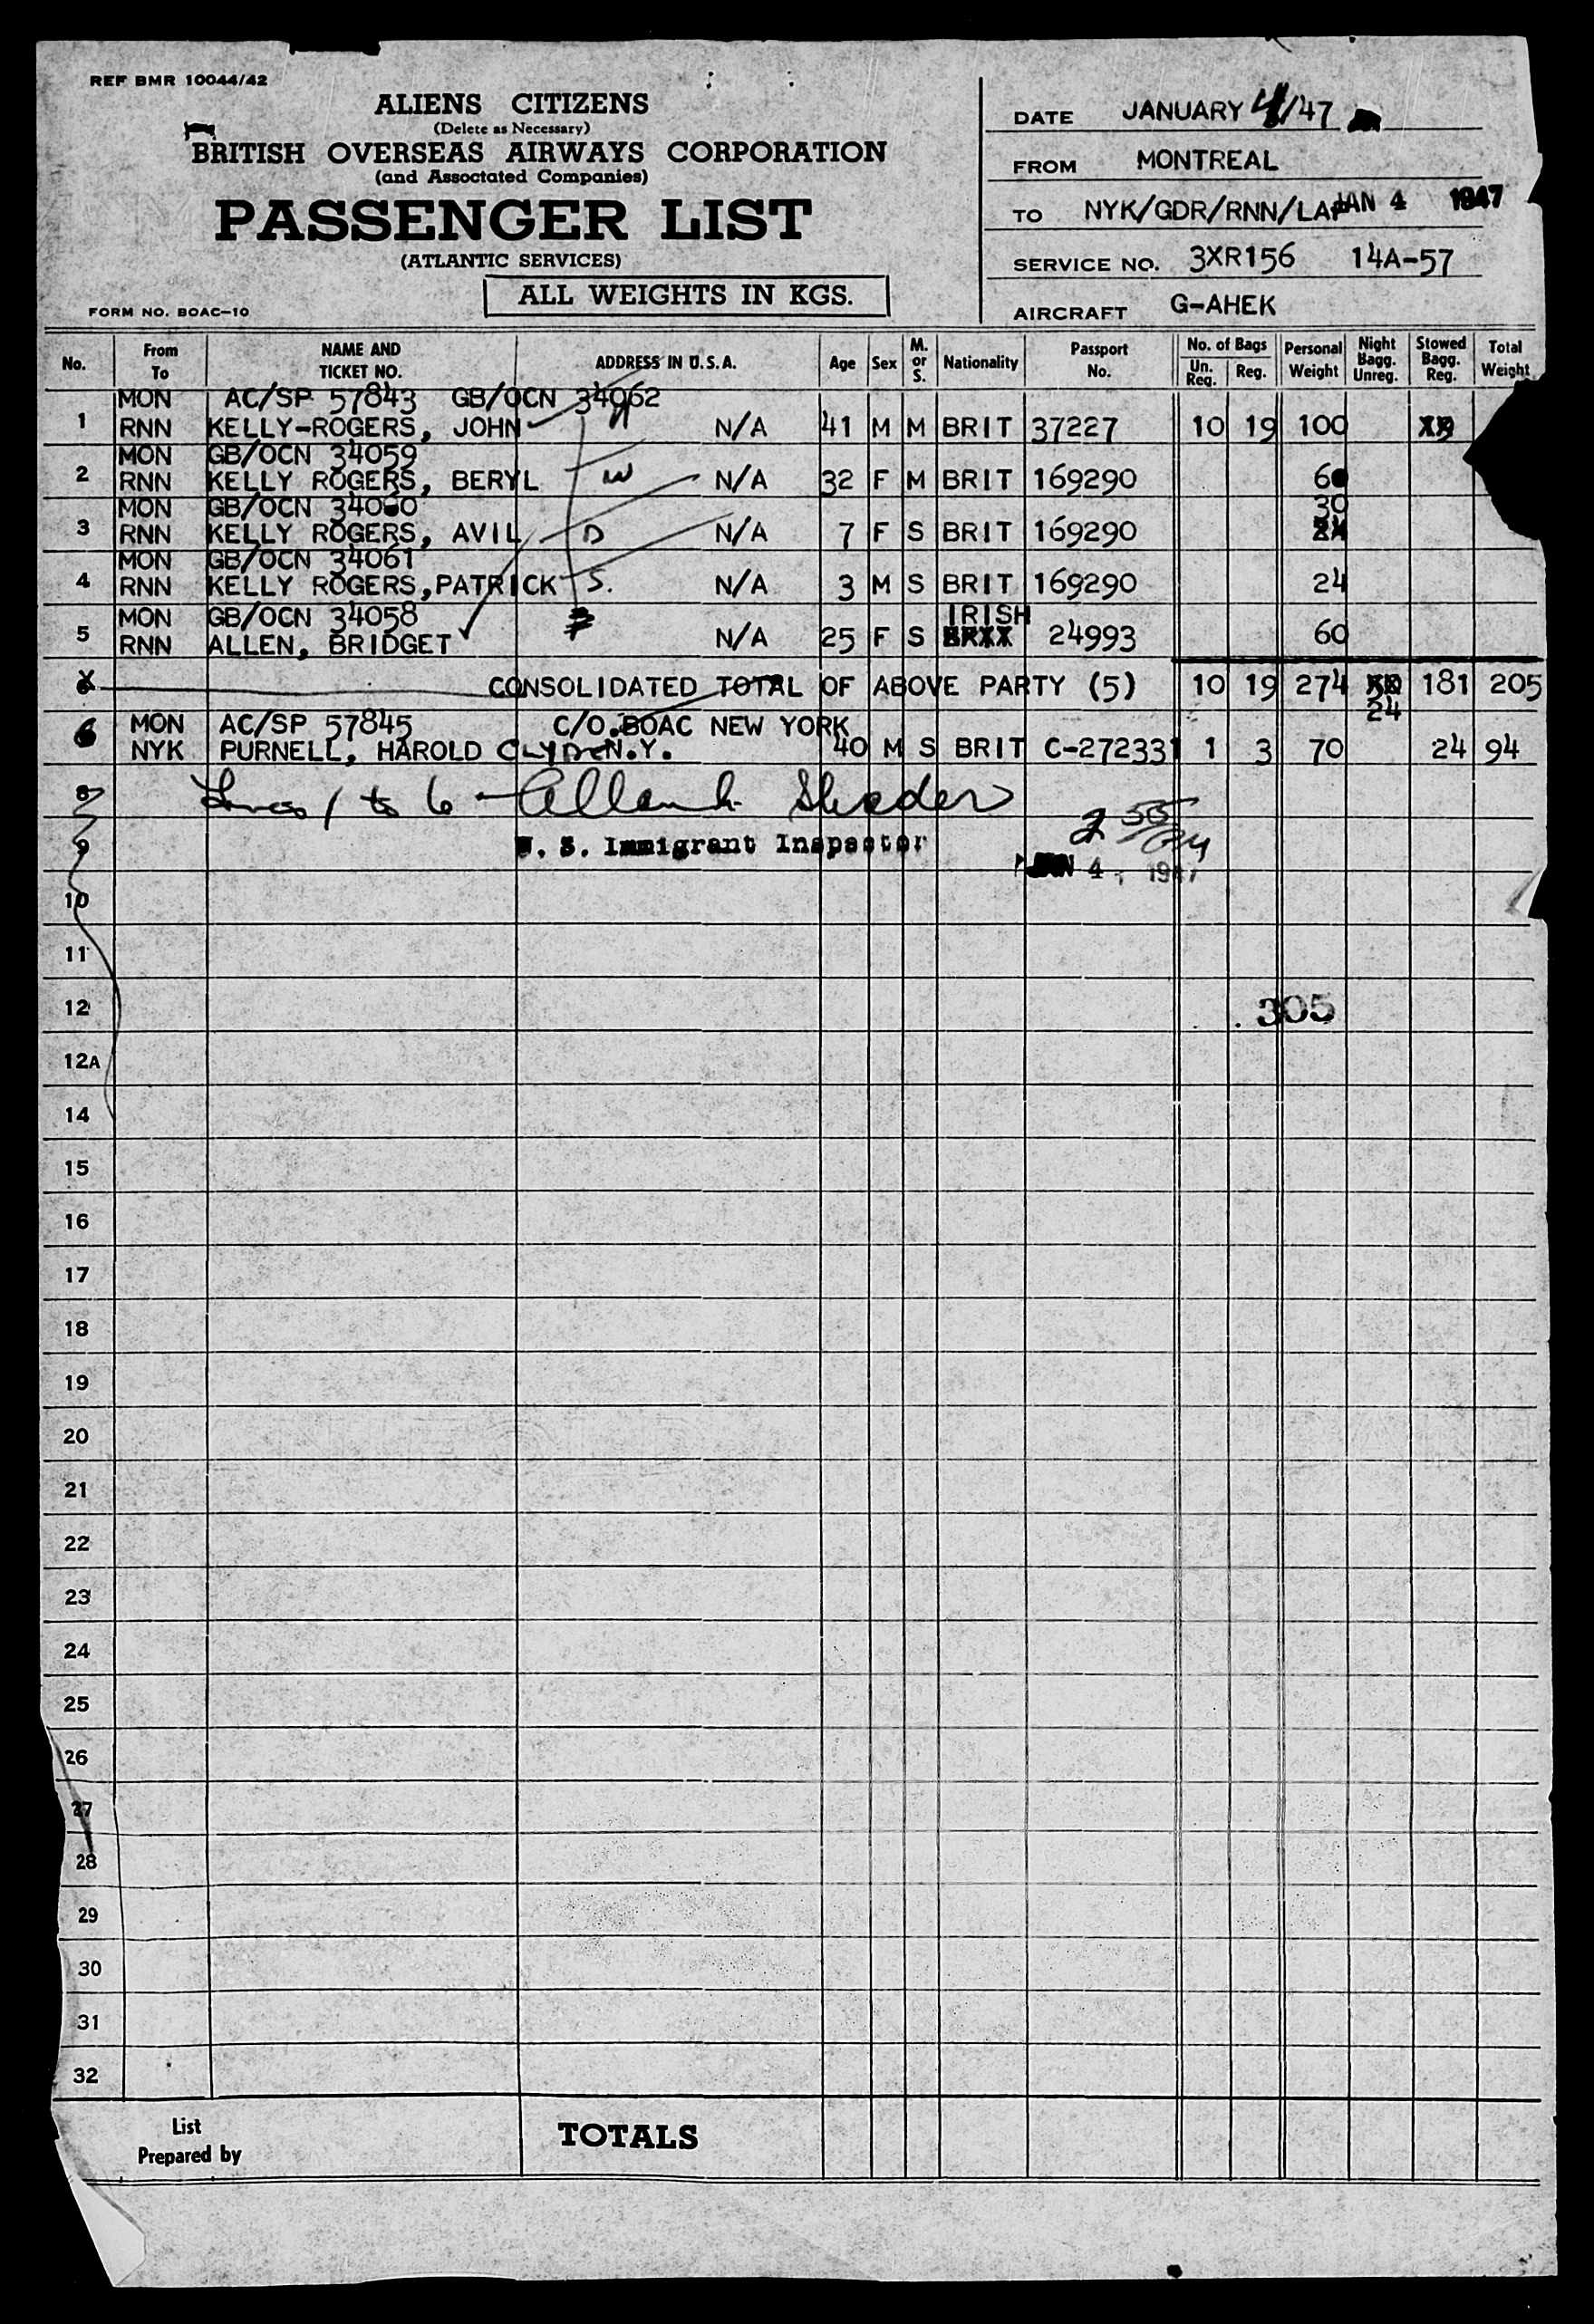 REF BMR 10044/42
ALIENS CITIZENS
(Delete as Necessary)
BRITISH OVERSEAS AIRWAYS CORPORATION
(and Associated Companies)
PASSENGER LIST
(ATLANTIC SERVICES)
ALL WEIGHTS IN KGS.
FORM NO. BOAC-10
DATE JANUARY 4/47
FROM MONTREAL
TO NYK/GDR/RNN/LAP JAN 4 1947
SERVICE NO. 3XR156 14A-57
AIRCRAFT G-AHEK
No. From To NAME AND TICKET NO. ADDRESS IN U.S.A. Age Sex M. or S. Nationality Passport No. No. of Bags Un. Reg. Reg. Personal Weight Night Bagg. Unreg. Stowed Bagg. Reg. Total Weight
MON AC/SP 57843 GB/OCN 34062
1 RNN KELLY-ROGERS, JOHN H N/A 41 M M BRIT 37227 10 19 100
MON GB/OCN 34059
2 RNN KELLY ROGERS, BERYL W N/A 32 F M BRIT 169290 60
MON GB/OCN 34060 30
3 RNN KELLY ROGERS, AVIL D N/A 7 F S BRIT 169290
MON GB/OCN 34061
4 RNN KELLY ROGERS,PATRICK S. N/A 3 M S BRIT 169290 24
MON GB/OCN 34058 IRISH
5 RNN ALLEN, BRIDGET N/A 25 F S 24993 60
CONSOLIDATED TOTAL OF ABOVE PARTY (5) 10 19 274 24 181 205
MON AC/SP 57845 C/O.BOAC NEW YORK
6 NYK PURNELL, HAROLD CLYDE N.Y. 40 M S BRIT C-272331 1 3 70 24 94
8 1 to 6
9 U. S. Immigrant Inspector
JAN 4 1947
10
11
12 305
12A
14
15
16
17
18
19
20
21
22
23
24
25
26
27
28
29
30
31
32
List Prepared by TOTALS